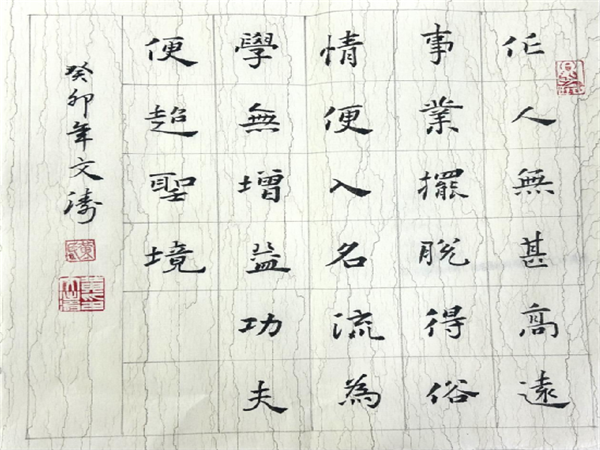 作人無甚高遠
事業擺脫得俗
情便入名流為
學無增益功夫
便超聖境
癸卯年文濤